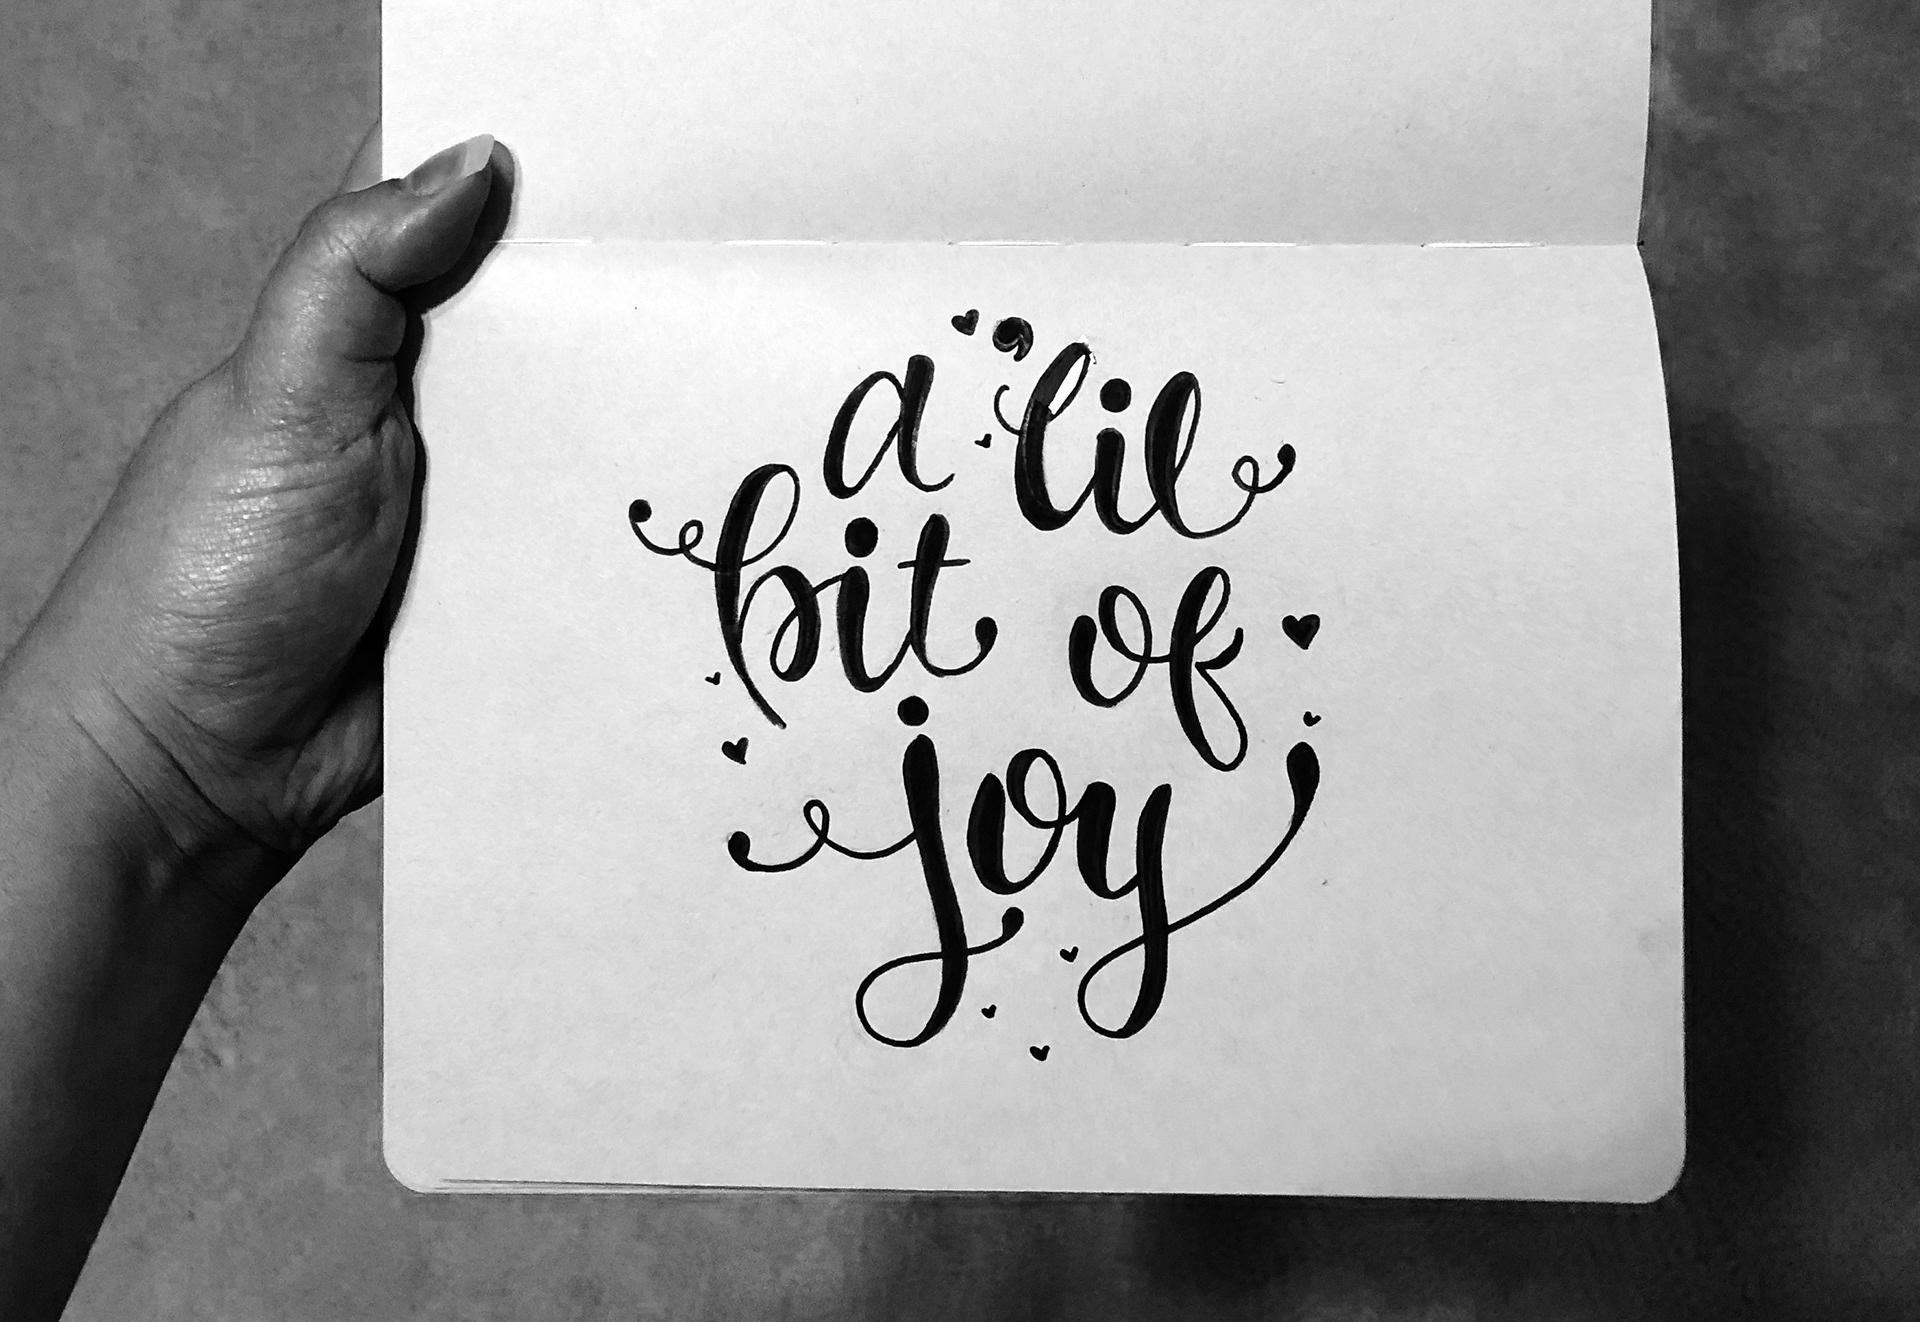 a 'lil
bit of
joy